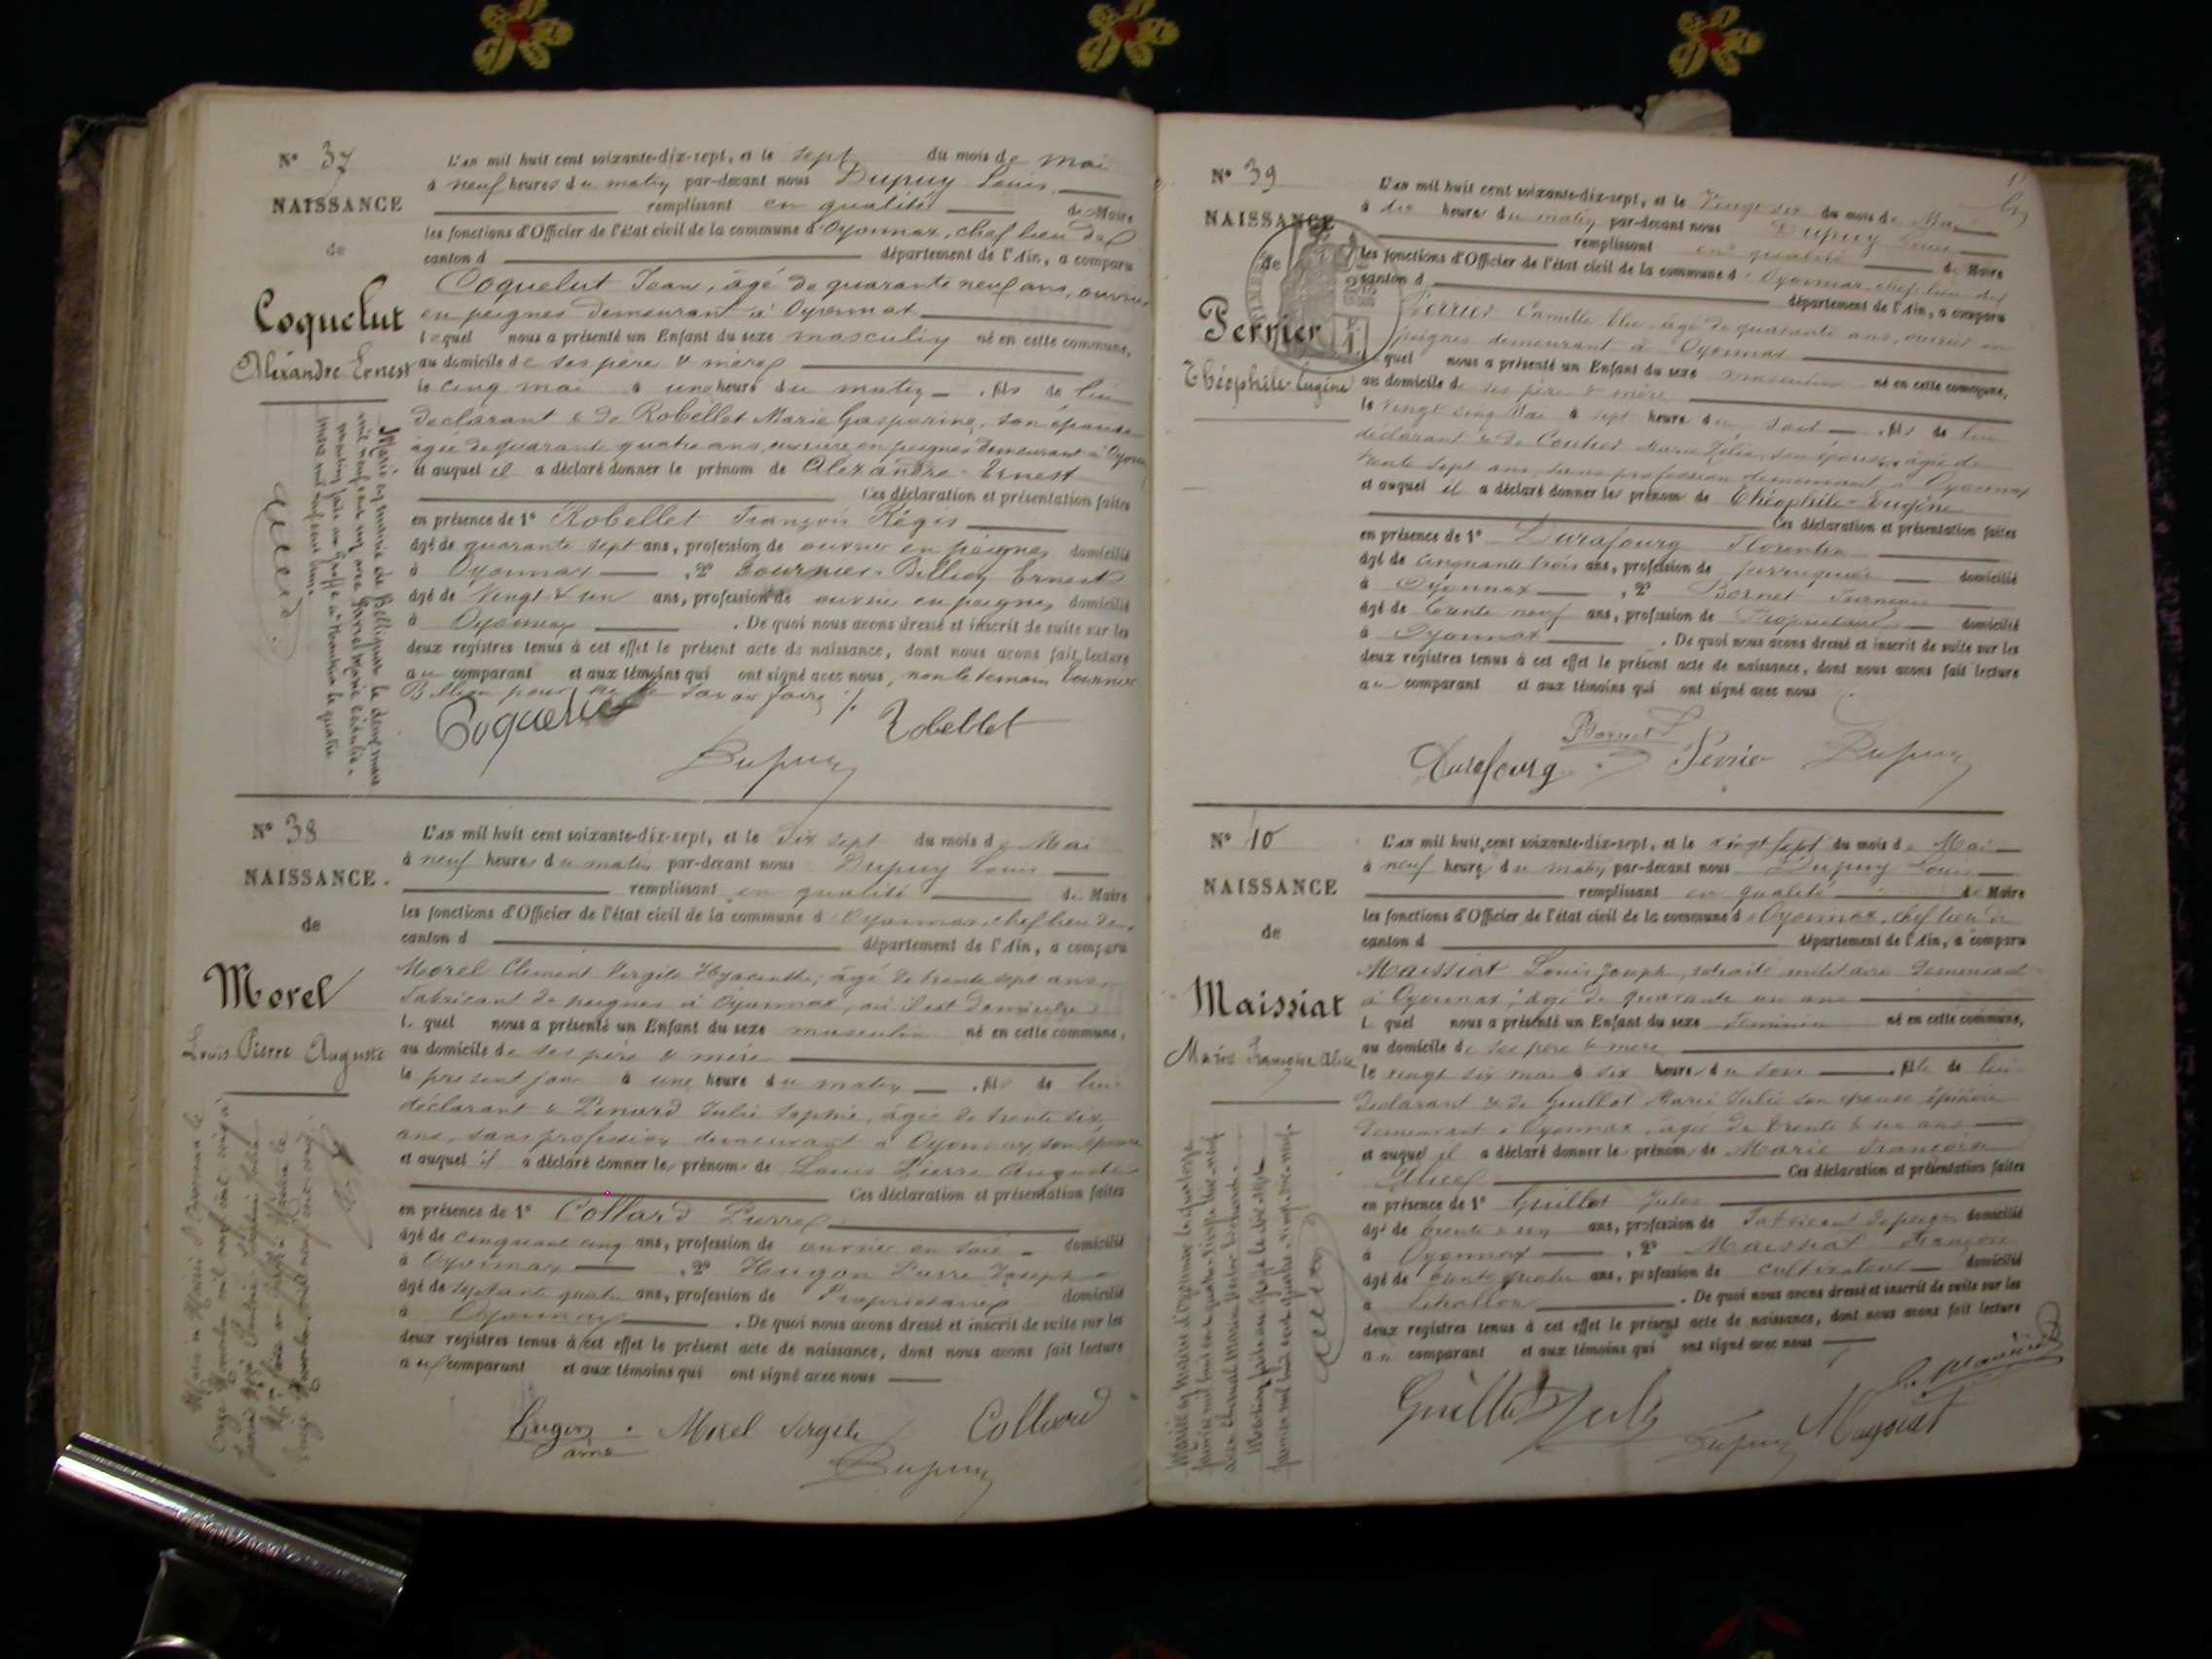 N° 37
NAISSANCE
de
Coquelut
Alexandre Ernest
Marié en mairie de Bellignat le deux mars
mil neuf cent un avec
mention faite au Greffe à Nantua le quatre
mars mil neuf cent un
L'an mil huit cent soixante-dix-sept, et le sept du mois de mai
à neuf heures du matin par-devant nous Dupuy Louis
remplissant en qualité de Maire
les fonctions d'Officier de l'état civil de la commune d'Oyonnax, chef lieu de
canton d département de l'Ain, a comparu
Coquelut Jean, âgé de quarante neuf ans, ouvrier
en peignes demeurant à Oyonnax
lequel nous a présenté un Enfant du sexe masculin né en cette commune,
au domicile de ses père & mère
le cinq mai à une heure du matin, fils de lui
déclarant & de Robellet Marie Gasparine, son épouse
âgée de quarante quatre ans, ouvrière en peignes demeurant à Oyonnax
et auquel il a déclaré donner le prénom de Alexandre-Ernest
Ces déclaration et présentation faites
en présence de 1° Robellet François Régis
âgé de quarante sept ans, profession de ouvrier en peignes domicilié
à Oyonnax, 2° Tournier-Billion Ernest
âgé de vingt & un ans, profession de ouvrier en peignes domicilié
à Oyonnax. De quoi nous avons dressé et inscrit de suite sur les
deux registres tenus à cet effet le présent acte de naissance, dont nous avons fait lecture
au comparant et aux témoins qui ont signé avec nous, non le témoin Tournier
Billion pour ne le savoir faire ./.
Coquelut Robellet
Dupuy
N° 38
NAISSANCE.
de
Morel
Louis Pierre Auguste
L'an mil huit cent soixante-dix-sept, et le dix sept du mois de Mai
à neuf heures du matin par-devant nous Dupuy Louis
remplissant en qualité de Maire
les fonctions d'Officier de l'état civil de la commune d'Oyonnax, chef lieu de
canton d département de l'Ain, a comparu
Morel Clément Virgile Hyacinthe, âgé de trente sept ans,
fabricant de peignes à Oyonnax, où il est domicilié
lequel nous a présenté un Enfant du sexe masculin né en cette commune,
au domicile de ses père & mère
le présent jour à une heure du matin, fils de lui
déclarant & Julie Sophie, âgée de trente six
ans, sans profession demeurant à Oyonnax, son épouse
et auquel il a déclaré donner les prénoms de Louis Pierre Auguste
Ces déclaration et présentation faites
en présence de 1° Collard Pierre
âgé de cinquante cinq ans, profession de ouvrier en soie domicilié
à Oyonnax, 2° Hugon Pierre Joseph
âgé de septante quatre ans, profession de Propriétaire domicilié
à Oyonnax. De quoi nous avons dressé et inscrit de suite sur les
deux registres tenus à cet effet le présent acte de naissance, dont nous avons fait lecture
au comparant et aux témoins qui ont signé avec nous
Hugon aîné Morel Virgile Collard
Dupuy
N° 39
NAISSANCE
de
Perrier
Théophile Eugène
L'an mil huit cent soixante-dix-sept, et le Vingt six du mois de Mai
à dix heures du matin par-devant nous Dupuy Louis
remplissant en qualité de Maire
les fonctions d'Officier de l'état civil de la commune d'Oyonnax chef lieu de
canton d département de l'Ain, a comparu
Perrier Camille âgé de quarante ans, ouvrier en
peignes demeurant à Oyonnax
lequel nous a présenté un Enfant du sexe masculin né en cette commune,
au domicile de ses père & mère
le vingt cinq Mai à sept heures du soir, fils de lui
déclarant & de Marie Zélie, son épouse, âgée de
trente sept ans, sans profession demeurant à Oyonnax
et auquel il a déclaré donner les prénom de Théophile-Eugène
Ces déclaration et présentation faites
en présence de 1° Durafourg Florentin
âgé de cinquante trois ans, profession de perruquier domicilié
à Oyonnax, 2° Bornet François
âgé de trente neuf ans, profession de Propriétaire domicilié
à Oyonnax. De quoi nous avons dressé et inscrit de suite sur les
deux registres tenus à cet effet le présent acte de naissance, dont nous avons fait lecture
au comparant et aux témoins qui ont signé avec nous
Bornet
Durafourg Perrier Dupuy
N° 40
NAISSANCE
de
Maissiat
Marie Françoise Alice
L'an mil huit cent soixante-dix-sept, et le vingt sept du mois de Mai
à neuf heures du matin par-devant nous Dupuy Louis
remplissant en qualité de Maire
les fonctions d'Officier de l'état civil de la commune d'Oyonnax, chef lieu de
canton d département de l'Ain, a comparu
Maissiat Louis Joseph, retraité militaire demeurant
à Oyonnax, âgé de quarante un ans
lequel nous a présenté un Enfant du sexe féminin né en cette commune,
au domicile de ses père & mère
le vingt six mai à six heures du soir, fille de lui
déclarant & de Guillot Marie Julie son épouse épicière
demeurant à Oyonnax, âgée de trente & un ans
et auquel il a déclaré donner les prénom de Marie Françoise
Alice Ces déclaration et présentation faites
en présence de 1° Guillot Jules
âgé de trente & un ans, profession de Fabricant de peignes domicilié
à Oyonnax, 2° Maissiat François
âgé de trente quatre ans, profession de cultivateur domicilié
à Echallon. De quoi nous avons dressé et inscrit de suite sur les
deux registres tenus à cet effet le présent acte de naissance, dont nous avons fait lecture
au comparant et aux témoins qui ont signé avec nous
Guillot Jules
Dupuy